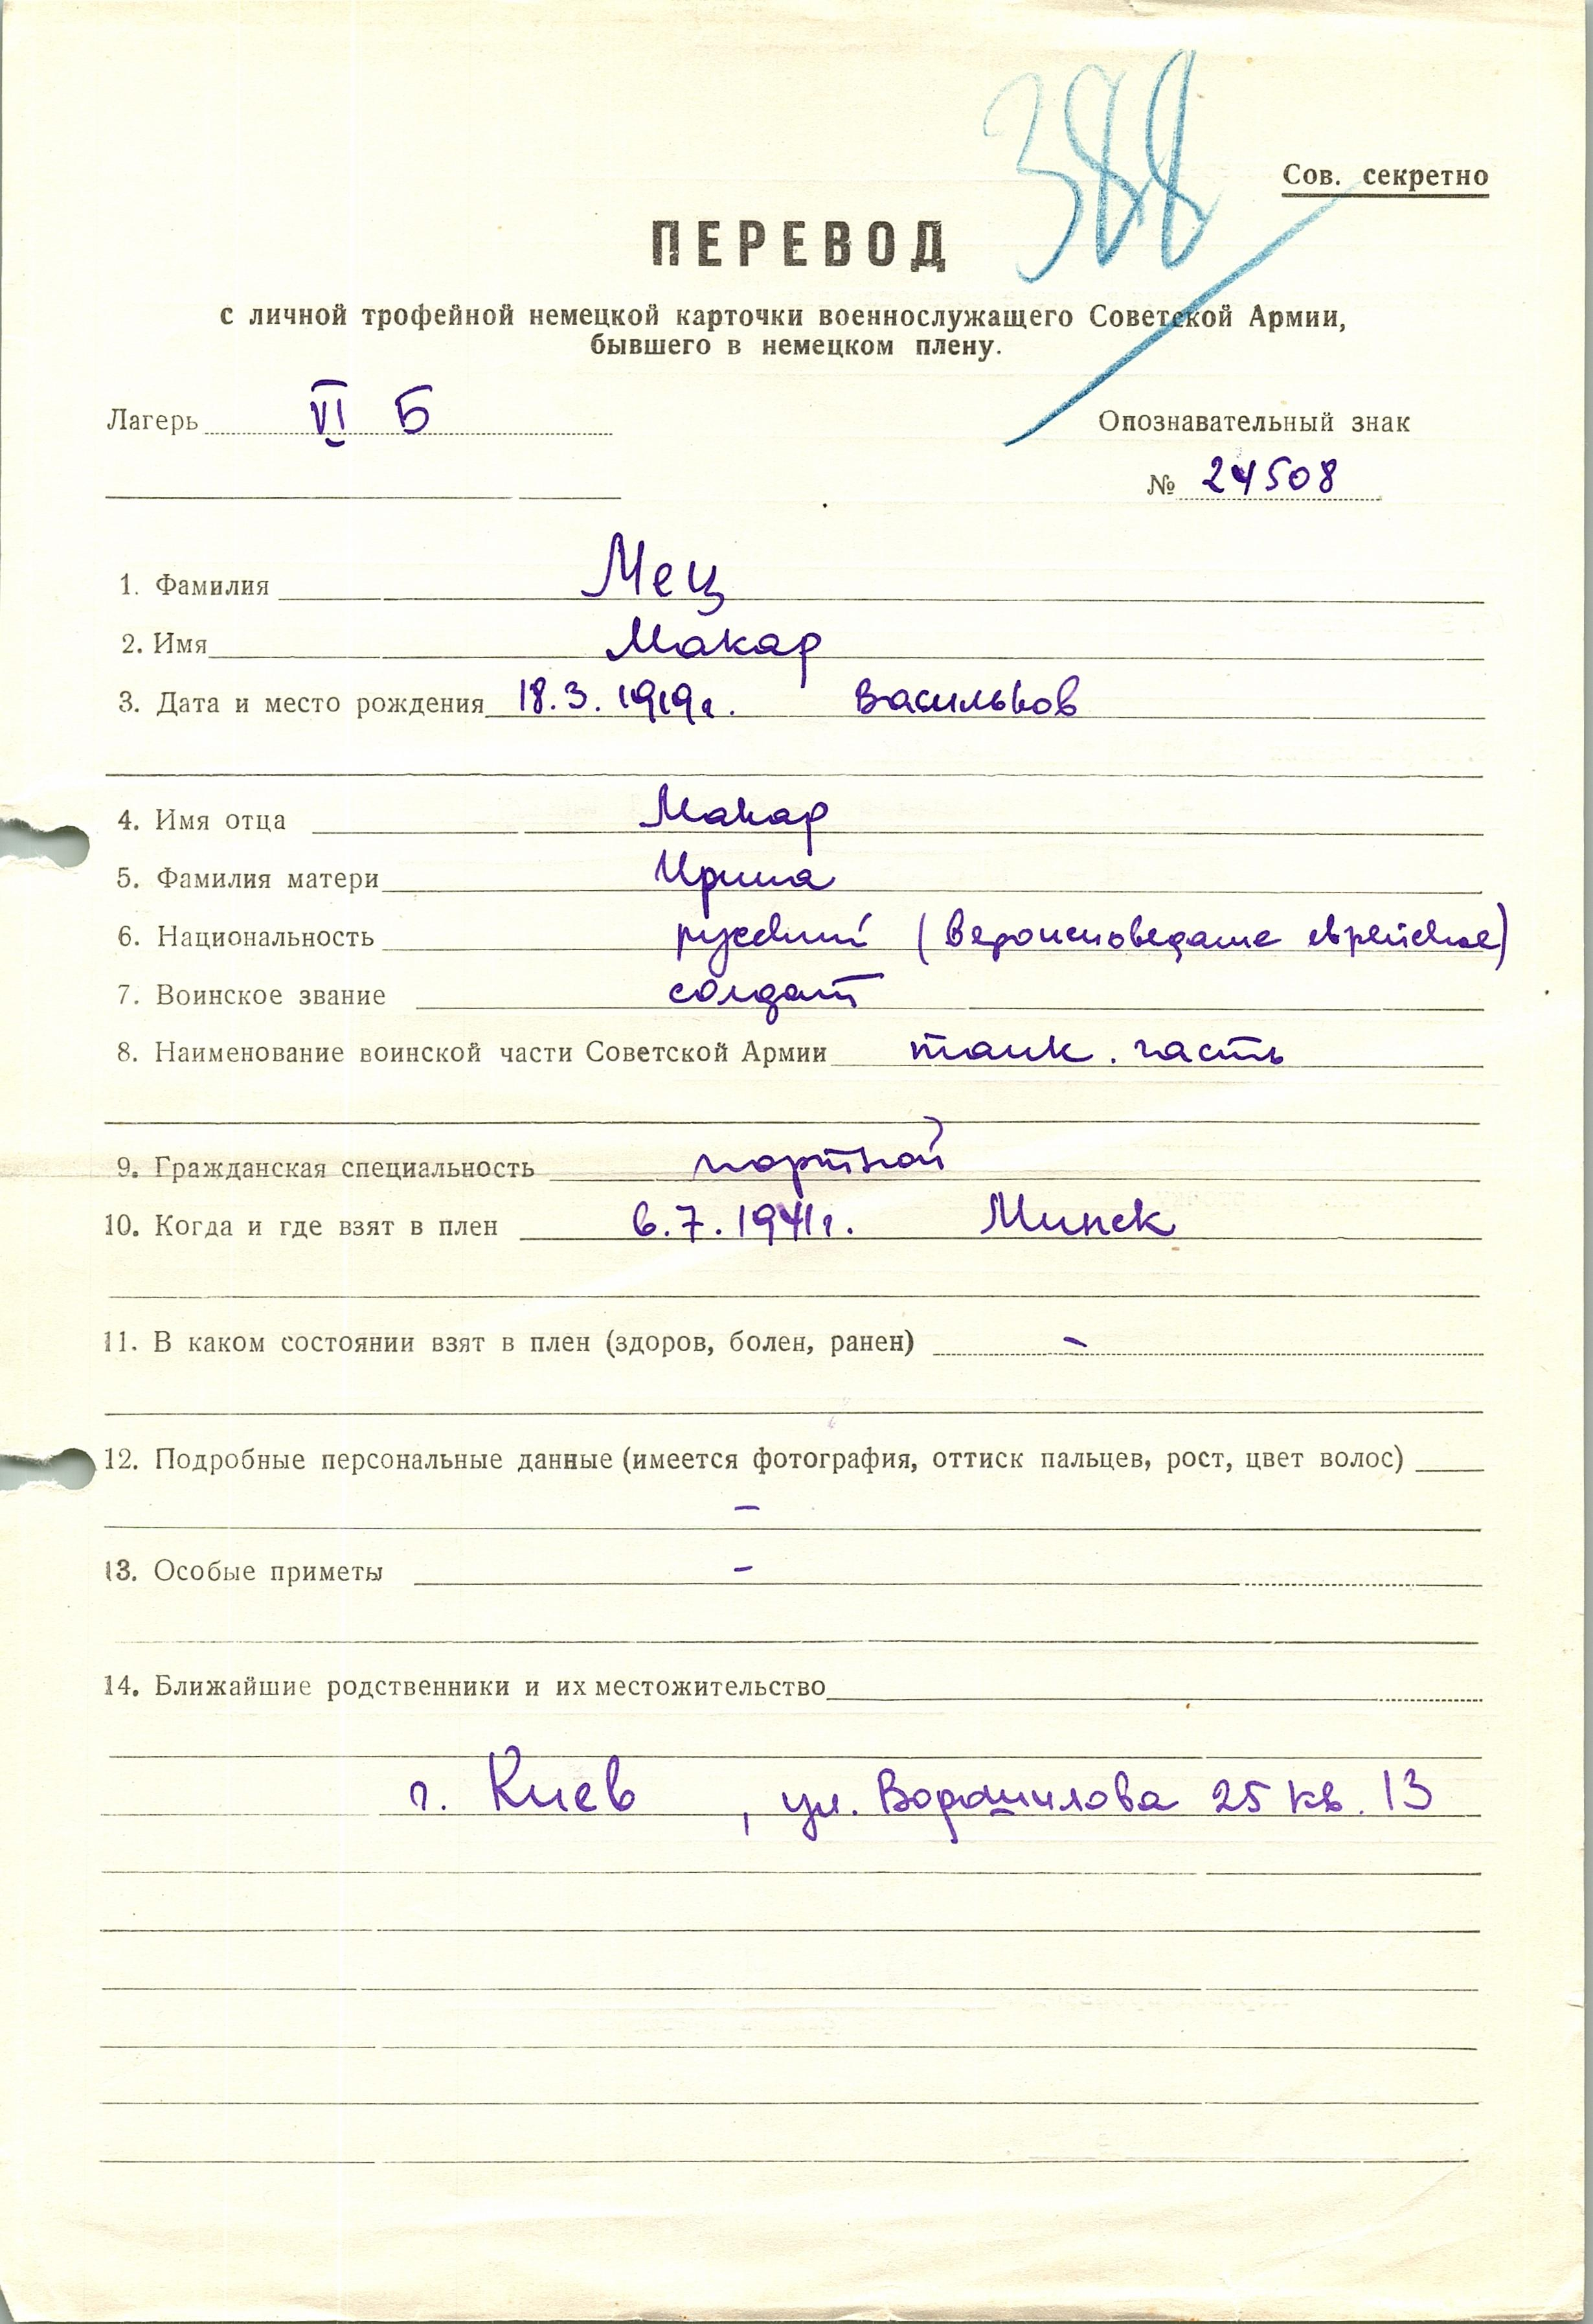 388
Сов. секретно
ПЕРЕВОД
с личной трофейной немецкой карточки военнослужащего Советской Армии,
бывшего в немецком плену.
Лагерь VI Б
Опознавательный знак
№ 24508
1. Фамилия Мец
2. Имя Макар
3. Дата и место рождения 18.3.1919г. Васильков
4. Имя отца Макар
5. Фамилия матери Ирина
6. Национальность русский (вероисповедание еврейское)
7. Воинское звание солдат
8. Наименование воинской части Советской Армии танк. часть
9. Гражданская специальность портной
10. Когда и где взят в плен 6.7.1941г. Минск
11. В каком состоянии взят в плен (здоров, болен, ранен) –
12. Подробные персональные данные (имеется фотография, оттиск пальцев, рост, цвет волос)
–
13. Особые приметы –
14. Ближайшие родственники и их местожительство
г. Киев, ул. Ворошилова 25 кв. 13